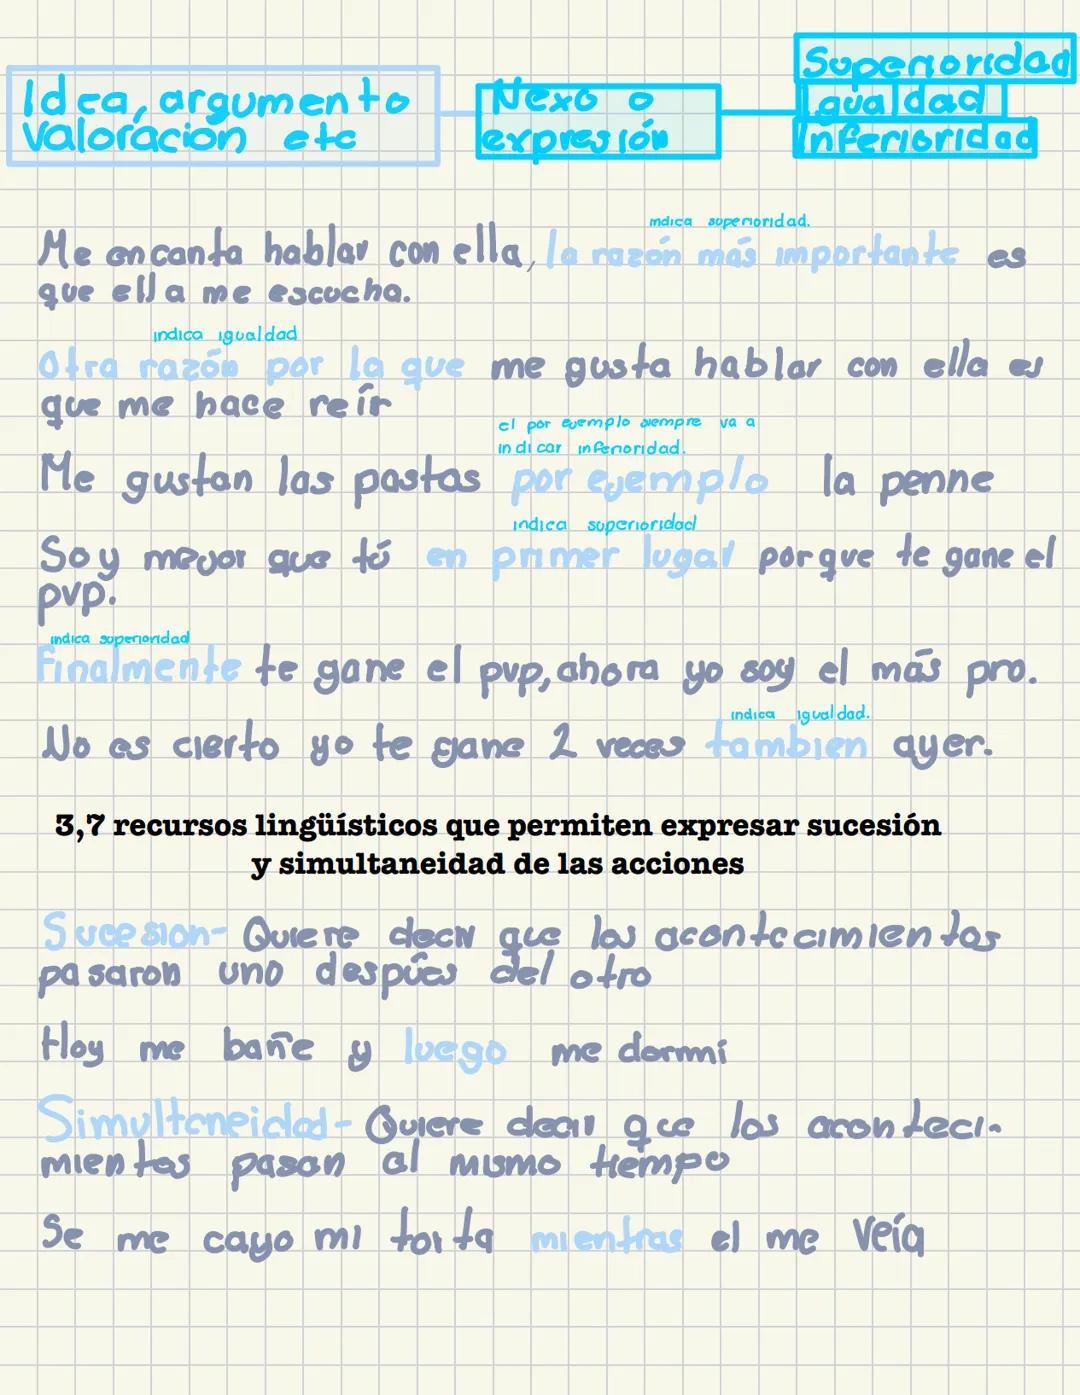 Idea, argumento
Valorácion etc
Nexo o
expresión
Superioridad
Igualdad
Inferioridad
indica superioridad.
Me encanta hablar con ella, la razón más importante es
que ella me escucha.
indica igualdad
Otra razón por la que me gusta hablar con ella es
que me hace reír
el por ejemplo siempre va a
indicar inferioridad.
Me gustan las pastas por ejemplo la penne
indica superioridad
Soy mejor que tú en primer lugar porque te gane el
pvp.
indica superioridad
Finalmente te gane el pvp, ahora yo soy el más pro.
indica igualdad.
No es cierto yo te gane 2 veces tambien ayer.
3,7 recursos lingüísticos que permiten expresar sucesión
y simultaneidad de las acciones
Sucesion- Quiere decir que los acontecimientos
pasaron uno despúes del otro
Hoy me bañe y luego me dormí
Simultaneidad- Quiere decir que los aconteci-
mientos pasan al mismo tiempo
Se me cayo mi torta mientras el me veía